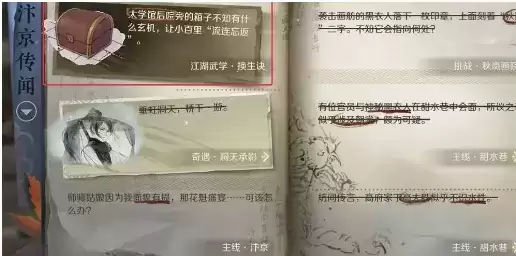 汴京传闻
太学馆后院旁的箱子不知有什
么玄机，让小百里“流连忘返”。
江湖武学·换生诀
洞天，桥下一游。
奇遇·洞天承影
师师姑娘因为面貌有损，那花魁盛宴……可该怎
么办？
主线·汴京
袭击画舫的黑衣人落下一枚印章，上面刻着
”二字。不知它会指向何处？
挑战·秋
有位官员与神秘黑衣人在甜水巷中会面，所议之
颇为可疑。
主线·甜水巷
坊间传言，高府家似乎不识水性。
主线·甜水巷